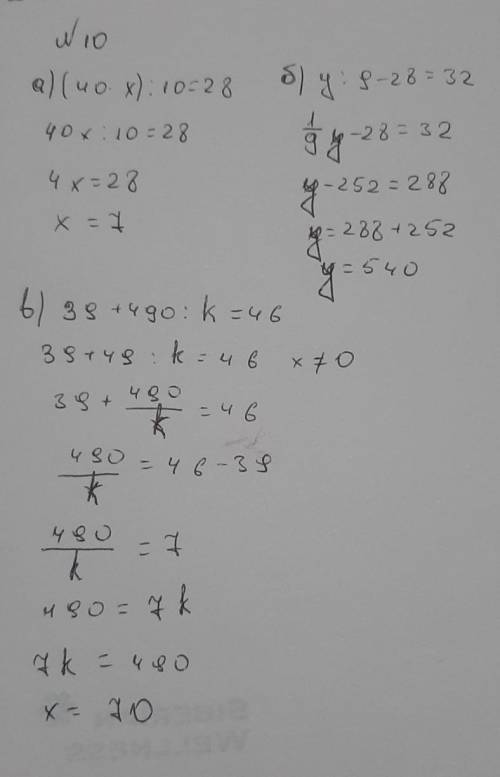 № 10
а) (40 · x) : 10 = 28
40x : 10 = 28
4x = 28
x = 7
б) y : 9 - 28 = 32
1/9 y - 28 = 32
y - 252 = 288
y = 288 + 252
y = 540
в) 39 + 490 : k = 46
39 + 49 : k = 46 x 70
39 + 490/k = 46
490/k = 46 - 39
490/k = 7
490 = 7k
7k = 490
x = 70